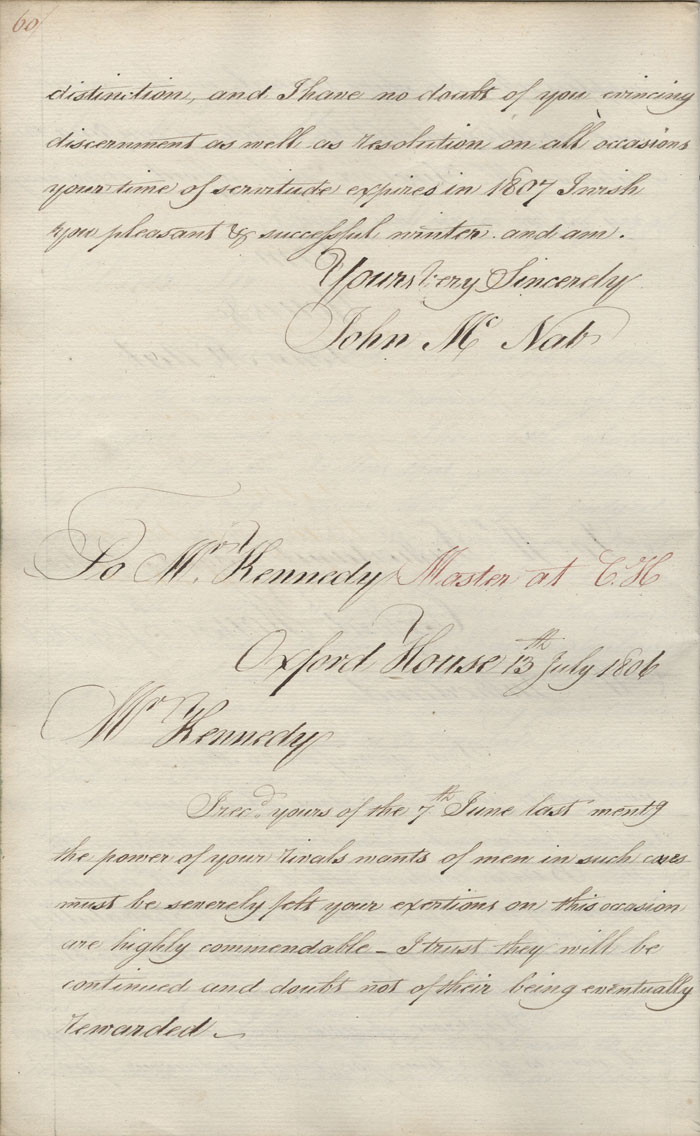 60
distinction, and I have no doubt of you evincing
discernment as well as resolution on all occasions
your time of servitude expires in 1807 I wish
you pleasant & successful winter. and am.
Yours very Sincerely
John Mc Nab
To Mr. Kennedy Master at C. H
Oxford House 13th July 1806
Mr Kennedy
I recd. yours of the 7th June last mentg
the power of your rivals wants of men in such cases
must be severely felt your exertions on this occasion
are highly commendable – I trust they will be
continued and doubt not of their being eventually
rewarded –